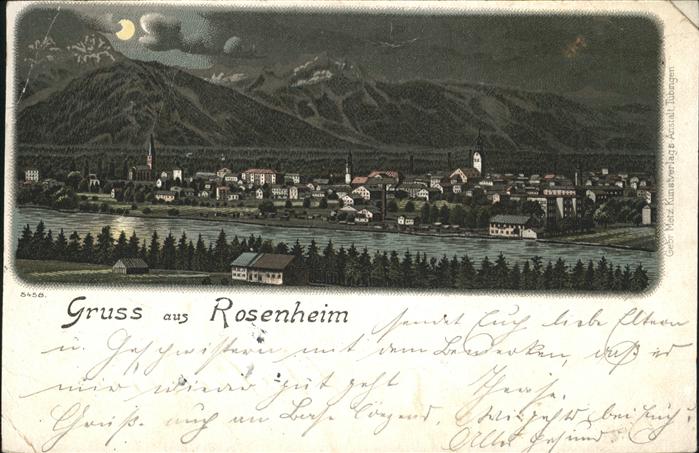 Gebr. Metz Kunstverlags Anstalt, Tübingen
5458.
Gruss aus Rosenheim
sendet Euch liebe Eltern
u. Geschwistern mit dem Bemerken, daß es
mir wieder gut geht
Grüße auch an Base
Wie gehts bei Euch:
Alles gesund